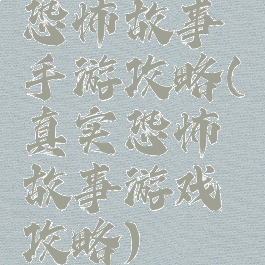 恐怖故事
手游攻略(
真实恐怖
故事游戏
攻略)